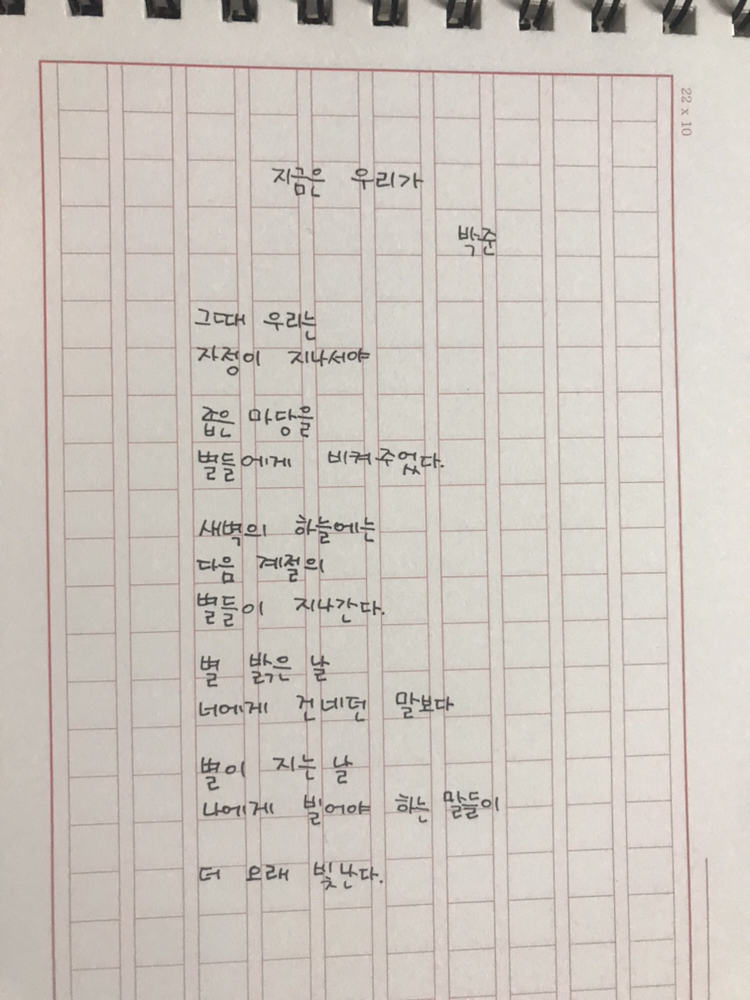 22 x 10
지금은 우리가
박준
그때 우리는
자정이 지나서야
좁은 마당을
별들에게 비켜주었다.
새벽의 하늘에는
다음 계절의
별들이 지나간다.
별 밝은 날
너에게 건네던 말보다
별이 지는 날
나에게 빌어야 하는 말들이
더 오래 빛난다.